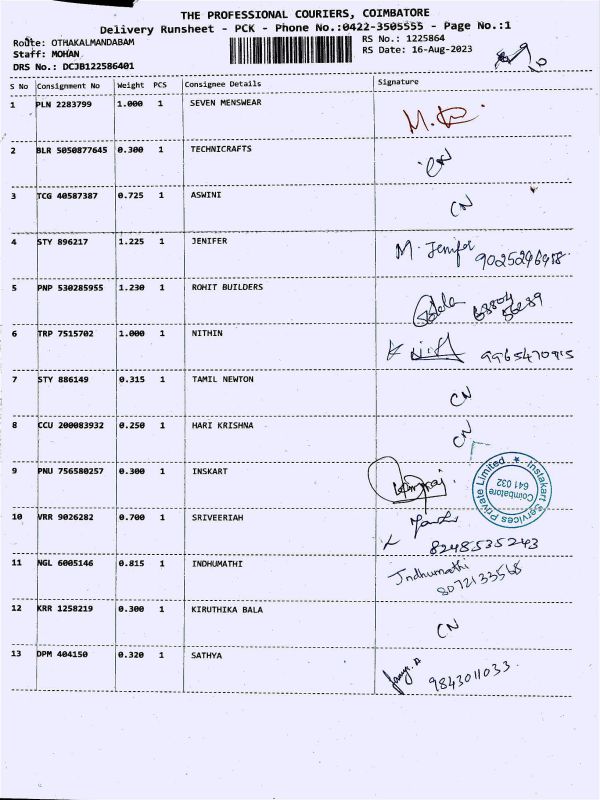 THE PROFESSIONAL COURIERS, COIMBATORE
Delivery Runsheet - PCK - Phone No.:0422-3505555 - Page No.:1
Route: OTHAKALMANDABAM
Staff: MOHAN
DRS No.: DCJB122586401
RS No.: 1225864
RS Date: 16-Aug-2023
S No Consignment No Weight PCS Consignee Details Signature
1 PLN 2283799 1.000 1 SEVEN MENSWEAR
2 BLR 5050877645 0.300 1 TECHNICRAFTS CN
3 TCG 40587387 0.725 1 ASWINI CN
4 STY 896217 1.225 1 JENIFER M. Jenifer
5 PNP 530285955 1.230 1 ROHIT BUILDERS
6 TRP 7515702 1.000 1 NITHIN
7 STY 886149 0.315 1 TAMIL NEWTON CN
8 CCU 200083932 0.250 1 HARI KRISHNA CN
9 PNU 756580257 0.300 1 INSKART
Instakart Services Private Limited
Coimbatore
641 032
10 VRR 9026282 0.700 1 SRIVEERIAH
8248535243
11 NGL 6005146 0.815 1 INDHUMATHI Indhumathi
8072133568
12 KRR 1258219 0.300 1 KIRUTHIKA BALA CN
13 DPM 404150 0.320 1 SATHYA 9843011033